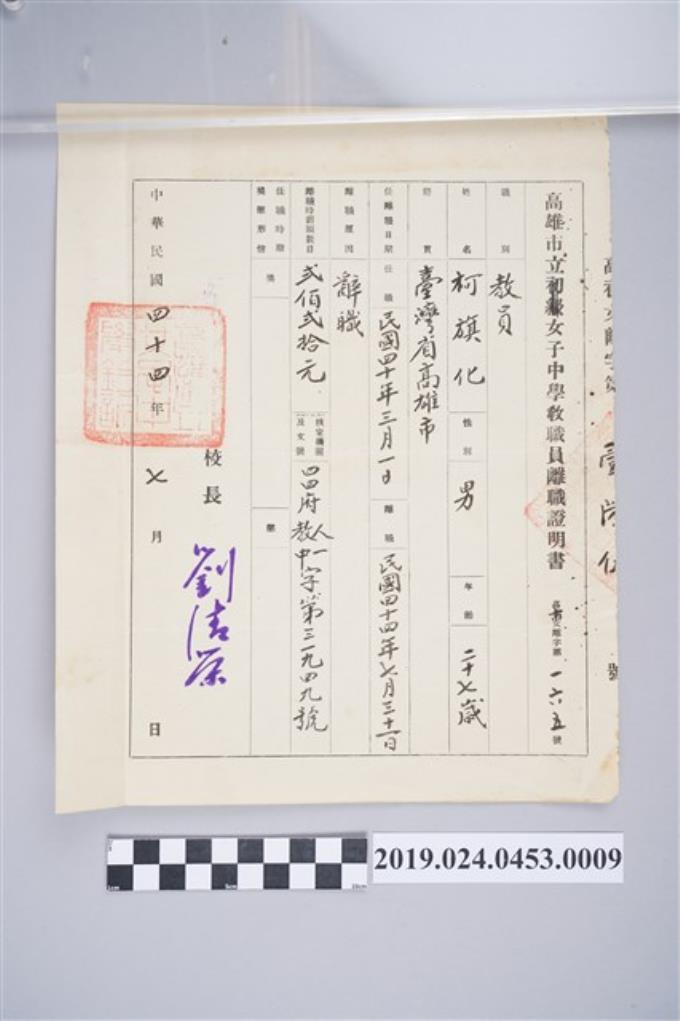 高雄市立初級女子中學教職員離職證明書
女離字第一六五號
職別 教員
姓名 柯旗化 性別 男 年齡 二十七歲
籍貫 臺灣省高雄市
任離職日期 任職 民國四十年三月一日 離職 民國四十四年七月三十一日
離職原因 辭職
離職時薪額數目 貳佰貳拾元 核定機關及文號 四四府教人中一字第三一九四九號
任職時期獎懲形情 獎 懲
校長 劉清榮
中華民國四十四年七月 日
2019.024.0453.0009